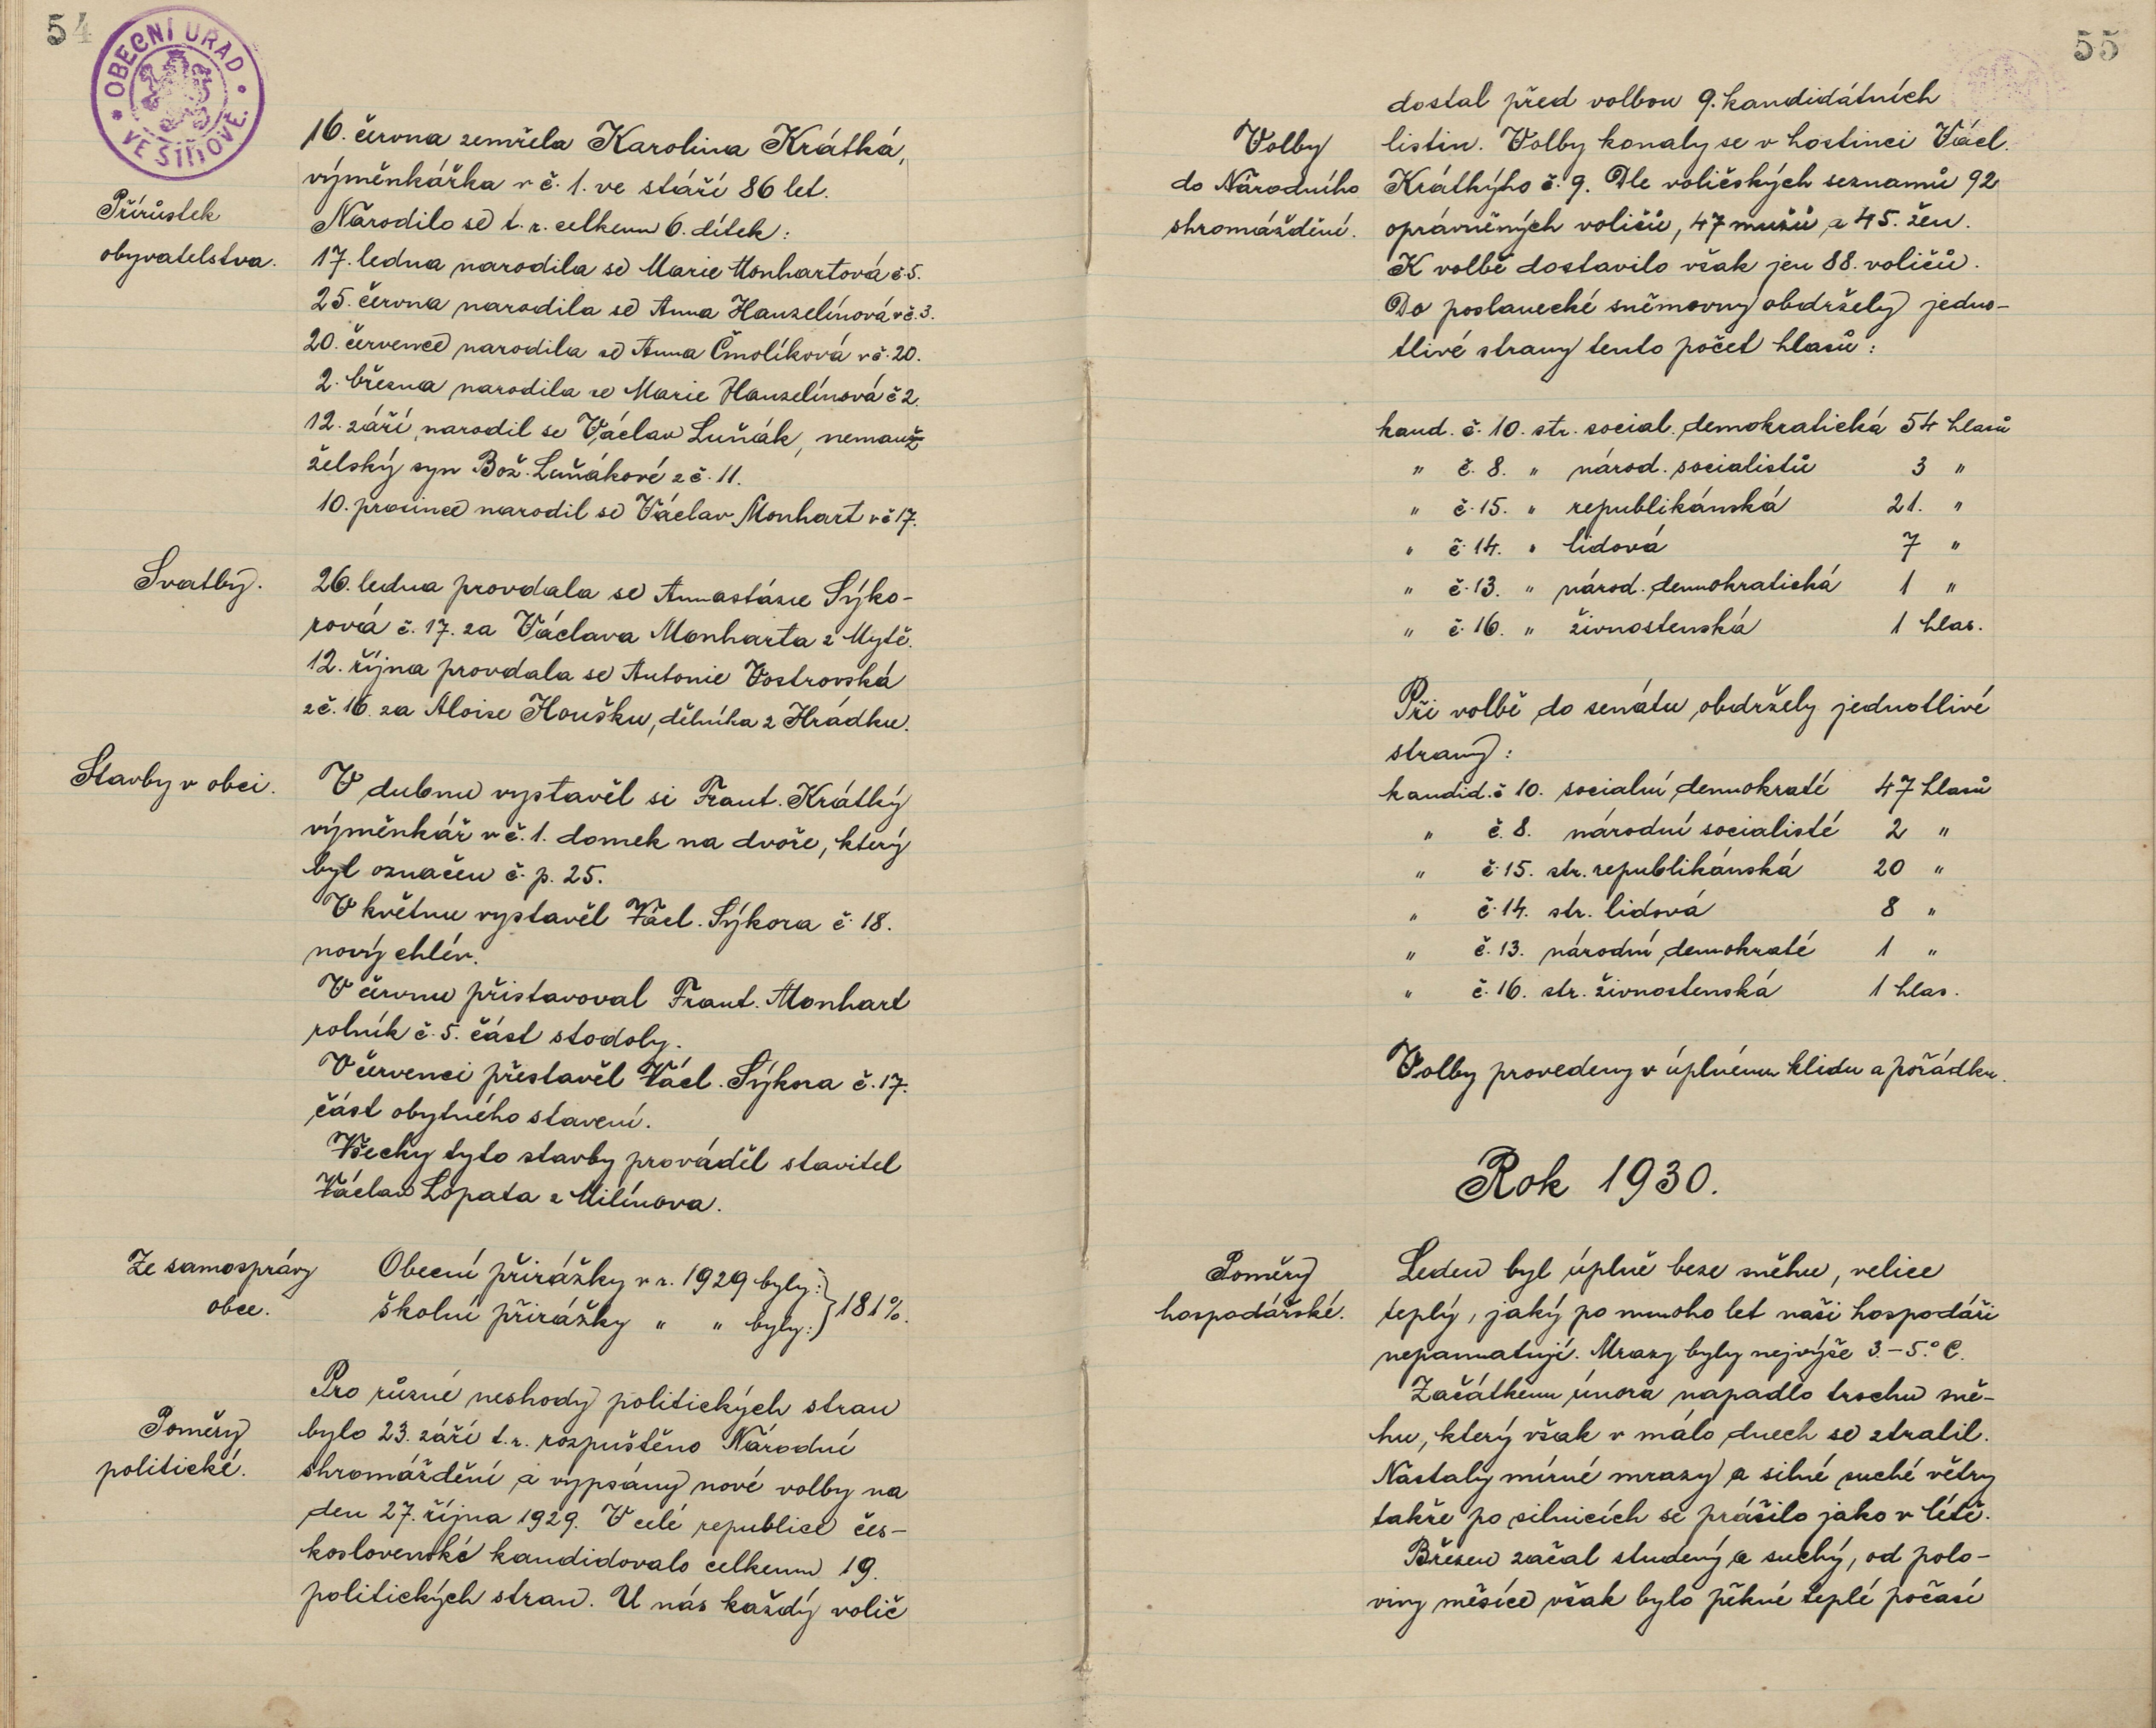 54
OBECNÍ ÚŘAD
VE ŠTÍŇOVĚ.
16. června zemřela Karolina Krátká,
výměnkářka v č. 1. ve stáří 86 let.
Přírůstek
obyvatelstva.
Narodilo se t. r. celkem 6. dítek:
17. ledna narodila se Marie Monhartová č 5.
25. června narodila se Anna Hanzelínová v č. 3.
20. července narodila se Anna Čmolíková v č. 20.
2. března narodila se Marie Hanzelínová č 2.
12. září narodil se Václav Luňák, nemanž
želský syn Bož. Luňákové z č. 11.
10. prosince narodil se Václav Monhart v č 17.
Svatby.
26. ledna provdala se Annastázie Sýko-
rová č. 17. za Václava Monharta z Mytě.
12. října provdala se Antonie Vostrovská
z č. 16. za Aloise Houšku, dělníka z Hrádku.
Stavby v obci.
V dubnu vystavěl si Frant. Krátký
výměnkář v č. 1. domek na dvoře, který
byl označen č. p. 25.
V květnu vystavěl Václ. Sýkora č. 18.
nový chlév.
V červnu přistavoval Frant. Monhart
rolník č. 5. část stodoly.
V červenci přestavěl Václ. Sýkora č. 17.
část obytného stavení.
Všecky tyto stavby prováděl stavitel
Václav Lopata z Milínova.
Ze samosprávy
obce.
Obecní přirážky v r. 1929 byly:
školní přirážky " " byly: } 181%.
Poměry
politické.
Pro různé neshody politických stran
bylo 23. září t. r. rozpuštěno Národní
shromáždění a vypsány nové volby na
den 27. října 1929. V celé republice čes-
koslovenské kandidovalo celkem 19.
politických stran. U nás každý volič
55
dostal před volbou 9. kandidátních
Volby
do Národního
shromáždění.
listin. Volby konaly se v hostinci Václ.
Krátkýho č. 9. Dle voličských seznamů 92
oprávněných voličů, 47 mužů a 45. žen.
K volbě dostavilo však jen 88. voličů.
Do poslanecké sněmovny obdržely jedno-
tlivé strany tento počet hlasů:
kand. č. 10. str. social. demokratická 54 hlasů
" č. 8. " národ. socialistů 3 "
" č. 15. " republikánská 21. "
" č. 14. " lidová 7 "
" č. 13. " národ. demokratická 1 "
" č. 16. " živnostenská 1 hlas.
Při volbě do senátu obdržely jednotlivé
strany:
kandid. č 10. socialní demokraté 47 hlasů
" č. 8. národní socialisté 2 "
" č. 15. str. republikánská 20 "
" č. 14. str. lidová 8 "
" č. 13. národní demokraté 1 "
" č. 16. str. živnostenská 1 hlas.
Volby provedeny v úplném klidu a pořádku.
Rok 1930.
Poměry
hospodářské.
Leden byl úplně beze sněhu, velice
teplý, jaký po mnoho let naši hospodáři
nepamatují. Mrazy byly nejvýše 3.–5.° C.
Začátkem února napadlo trochu sně-
hu, který však v málo dnech se ztratil.
Nastaly mírné mrazy a silné suché větry
takže po silnicích se prášilo jako v létě.
Březen začal studený a suchý, od polo-
viny měsíce však bylo pěkné teplé počasí